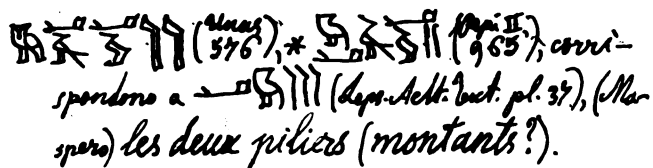 (Unas 576), * (Pepi II, 965), corri-
spondono a (Leps. Aelt. Text. pl. 37), (Ma-
spero) les deux piliers (montants?).